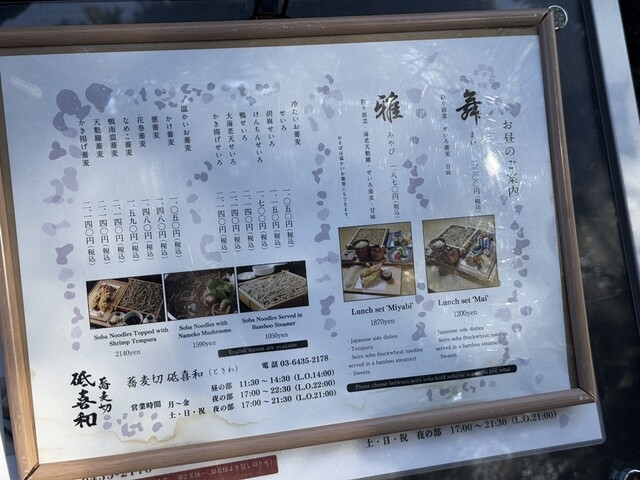 お昼のご案内
舞
まい
彩り前菜・せいろ蕎麦・甘味
雅
みやび 一八七〇円（税込）
彩り前菜・海老天麩羅・せいろ蕎麦・甘味
Lunch set 'Miyabi'
1870yen
· Japanese side dishes
· Tempura
· Seiro soba (buckwheat noodles
served in a bamboo steamer)
· Sweets
Lunch set 'Mai'
1200yen
· Japanese side dishes
· Seiro soba (buckwheat noodles
served in a bamboo steamer)
· Sweets
冷たいお蕎麦
せいろ 一、〇五〇円（税込）
胡麻せいろ
けんちんせいろ
鴨せいろ
大海老天せいろ
かき揚げせいろ
温かいお蕎麦
かけ蕎麦 一、〇五〇円（税込）
葱蕎麦 一、四八〇円（税込）
花巻蕎麦 一、四八〇円（税込）
なめこ蕎麦 一、五九〇円（税込）
鴨南蛮蕎麦
天麩羅蕎麦 二、一四〇円（税込）
かき揚げ蕎麦 二、一四〇円（税込）
Soba Noodles Topped with
Shrimp Tempura
2140yen
Soba Noodles with
Nameko Mushrooms
1590yen
Soba Noodles Served in
Bamboo Steamer
1050yen
English menus are available
蕎麦切
砥喜和
蕎麦切 砥喜和（ときわ） 電話 03-6435-2178
営業時間 月～金 昼の部 11:30～14:30 (L.O.14:00)
夜の部 17:00～22:30 (L.O.22:00)
土・日・祝 夜の部 17:00～21:30 (L.O.21:00)
土・日・祝 夜の部 17:00～21:30 (L.O.21:00)